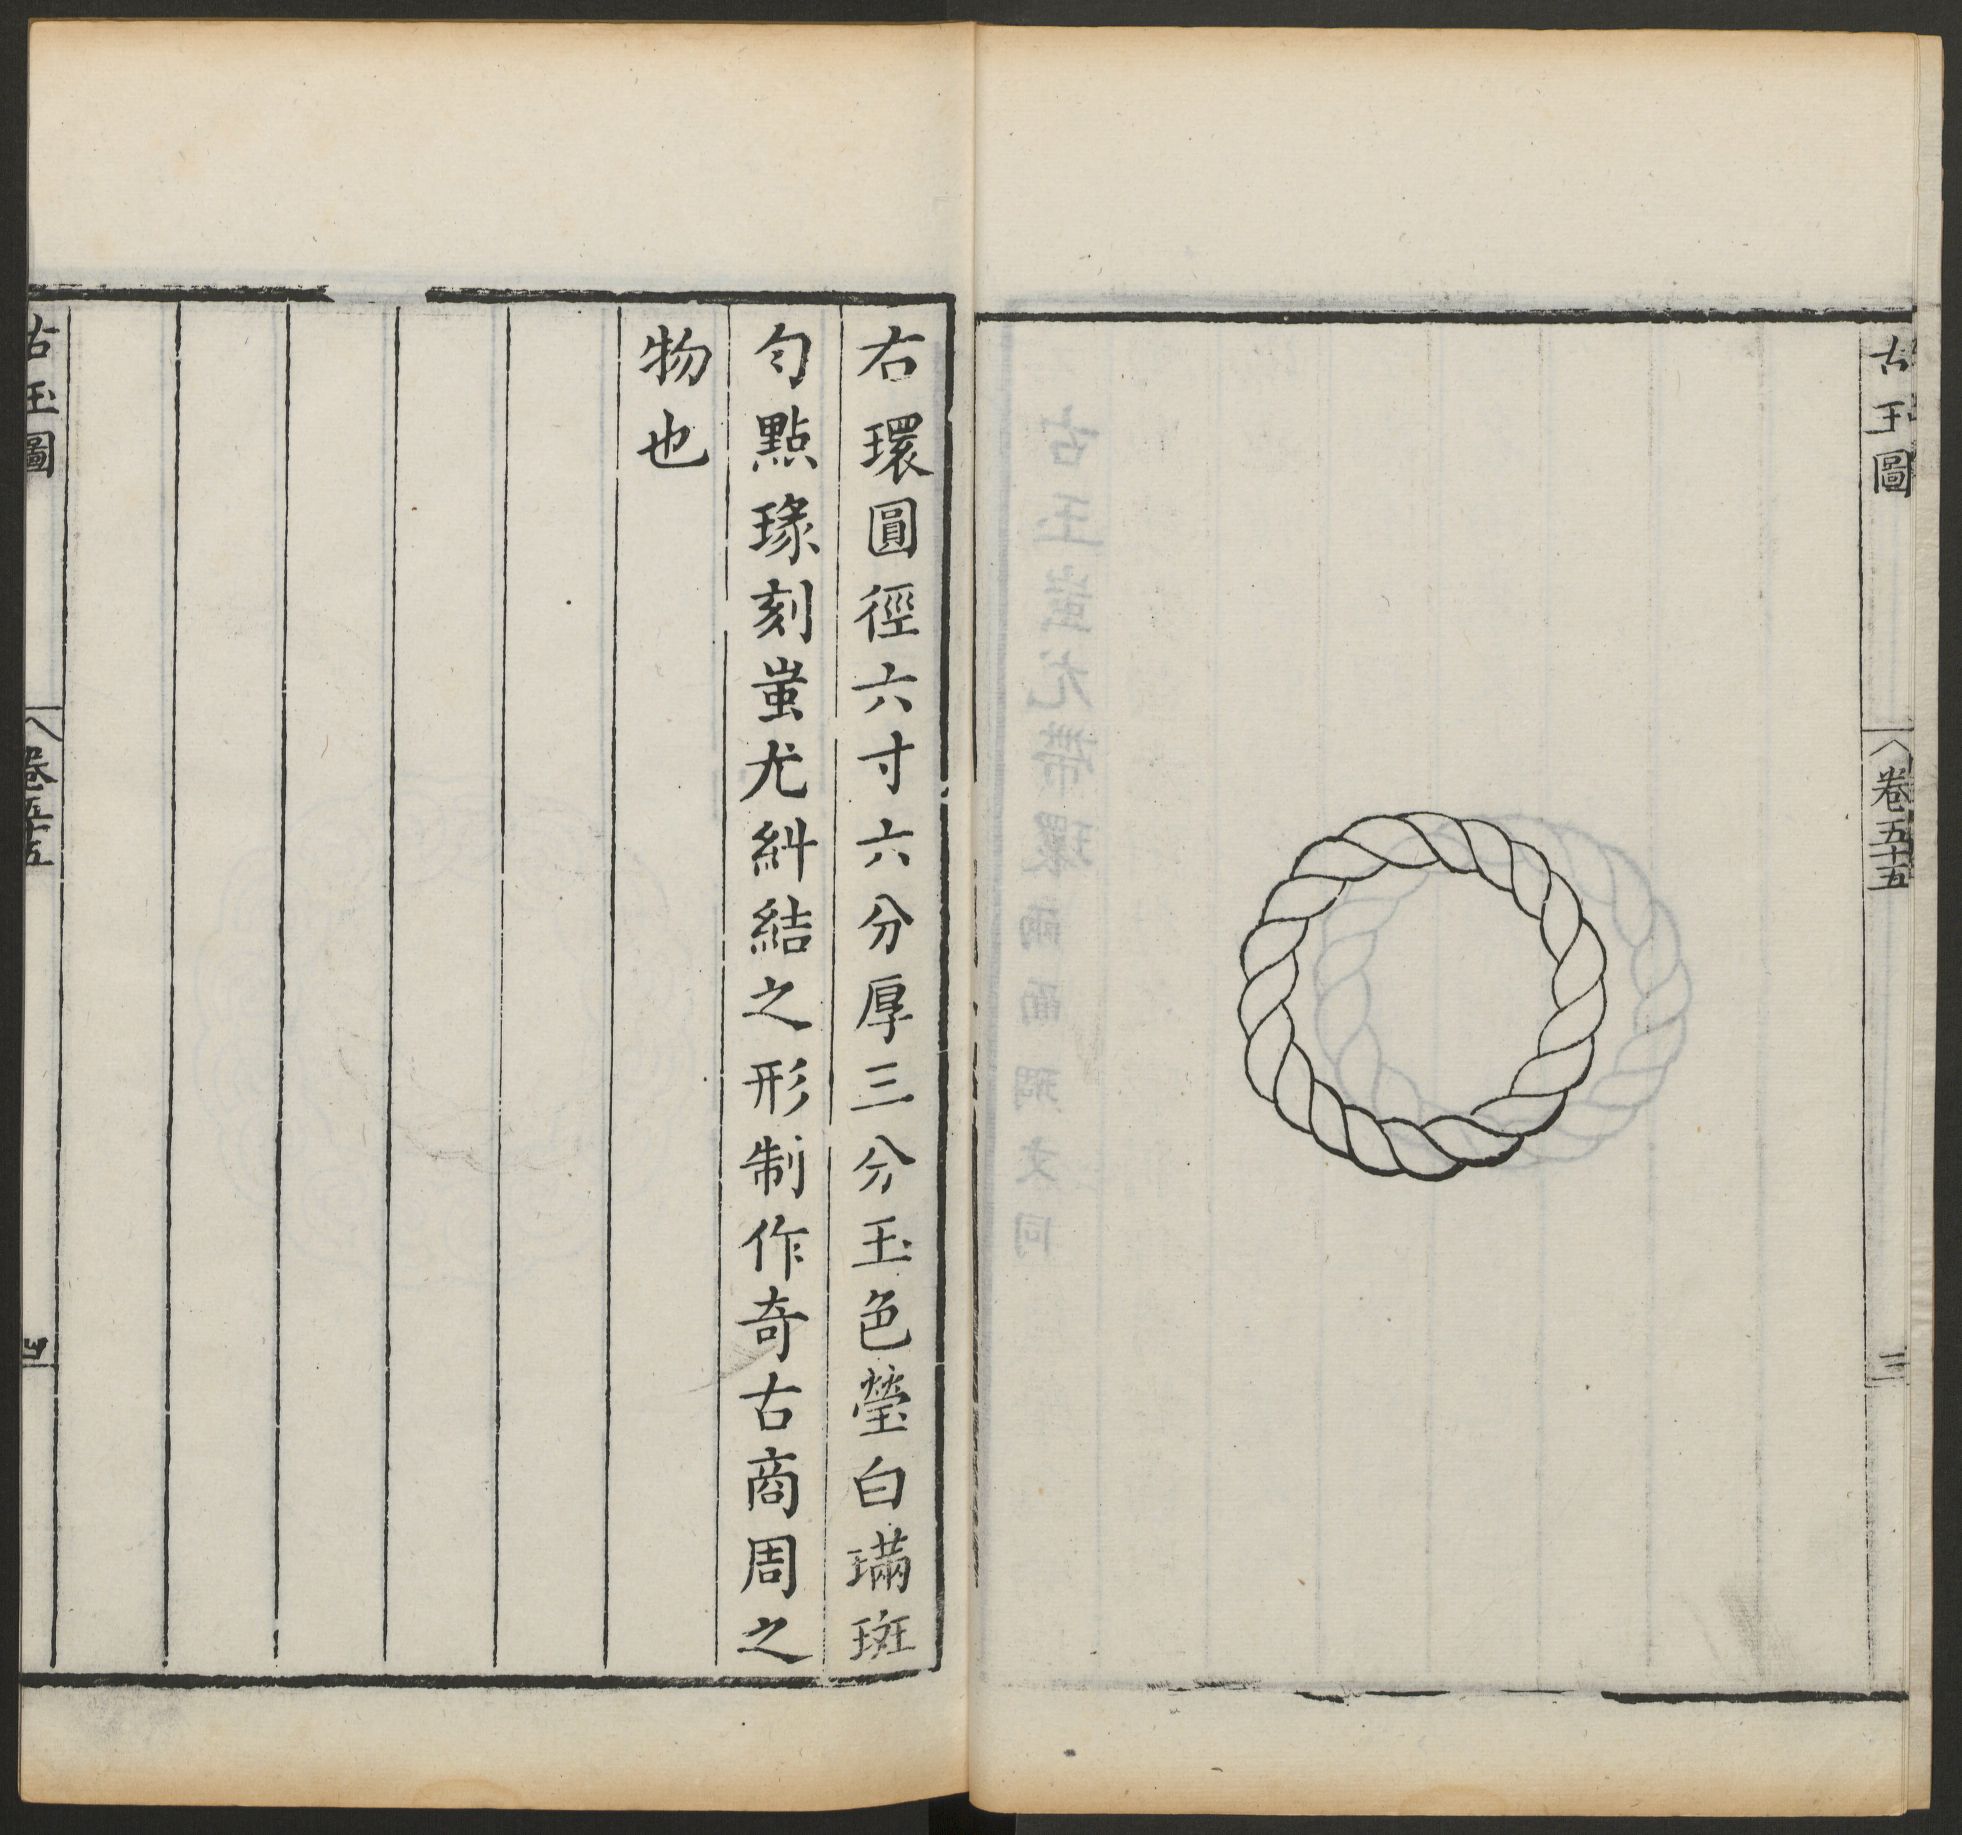 古玉圖
卷五十五
三
右環圓徑六寸六分厚三分玉色瑩白璊斑
勻點瑑刻蚩尤糾結之形制作奇古商周之
物也
古玉圖
卷五十五
四